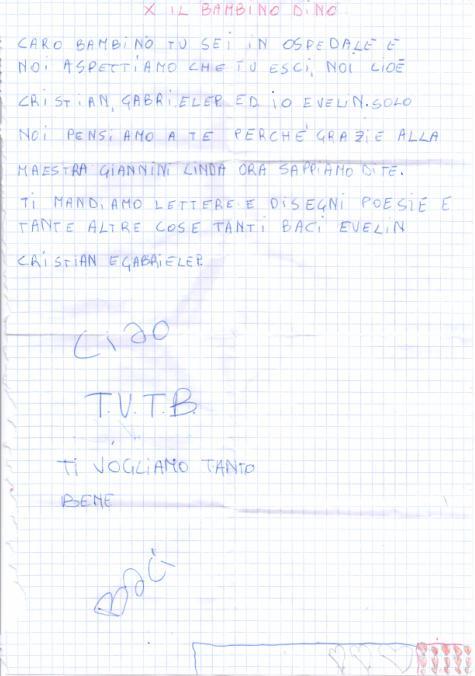 X IL BAMBINO DINO
CARO BAMBINO TU SEI IN OSPEDALE E
NOI ASPETTIAMO CHE TU ESCI, NOI CIOÈ
CRISTIAN, GABRIELE P. ED IO EVELIN. SOLO
NOI PENSIAMO A TE PERCHÉ GRAZIE ALLA
MAESTRA GIANNINI LINDA ORA SAPPIAMO DI TE.
TI MANDIAMO LETTERE E DISEGNI POESIE E
TANTE ALTRE COSE TANTI BACI EVELIN
CRISTIAN E GABRIELE P.
CIAO
T.V.T.B.
TI VOGLIAMO TANTO
BENE
BACI